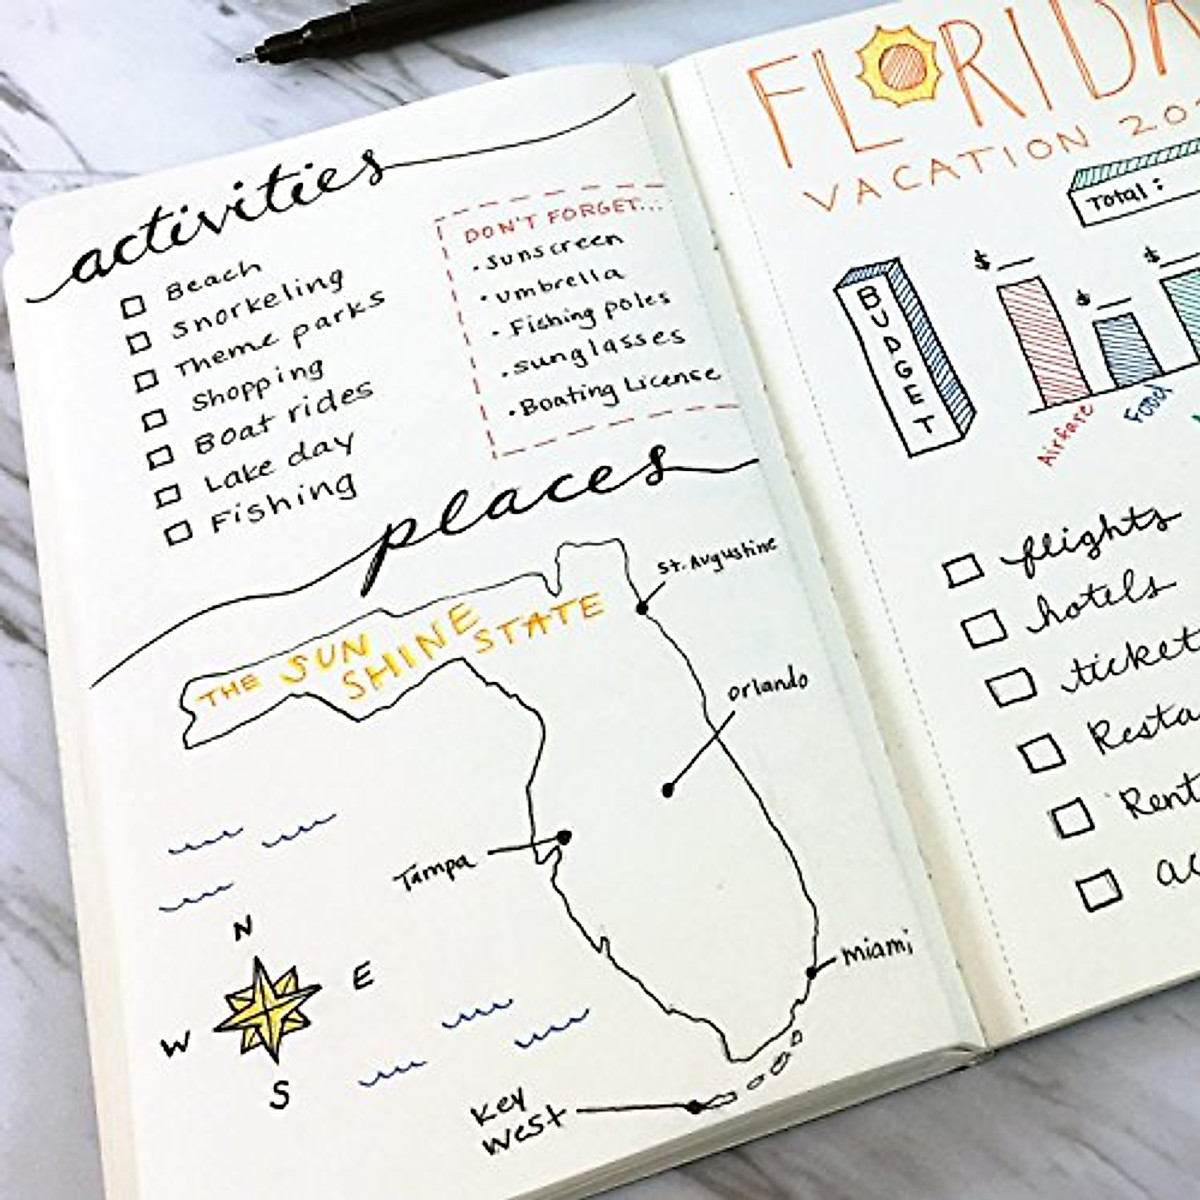 activities
Beach
Snorkeling
Theme parks
Shopping
Boat rides
Lake day
Fishing
DON'T FORGET...
• sunscreen
• umbrella
• Fishing poles
• sunglasses
• Boating License
places
THE SUN
SHINE
STATE
St. Augustine
Orlando
Tampa
Miami
Key
West
N
E
W
S
FLORIDA
VACATION 20
Total:
BUDGET
$
$
$
Airfare
Food
flights
hotels
ticket
Resta
Rent